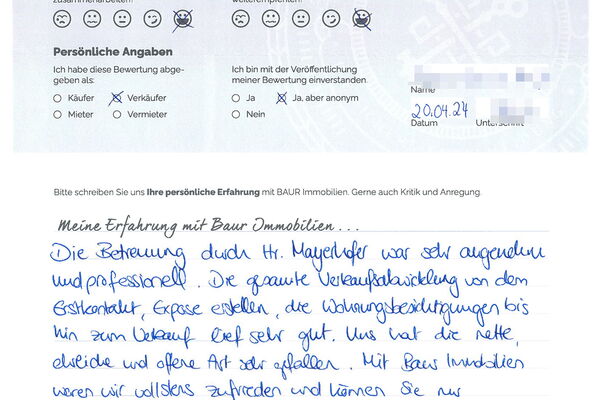 zusammenarbeiten? weiterempfehlen?
Persönliche Angaben
Ich habe diese Bewertung abge- Ich bin mit der Veröffentlichung
geben als: meiner Bewertung einverstanden.
Käufer Verkäufer Ja Ja, aber anonym
Mieter Vermieter Nein
Name
20.04.24
Datum Unterschrift
Bitte schreiben Sie uns Ihre persönliche Erfahrung mit BAUR Immobilien. Gerne auch Kritik und Anregung.
Meine Erfahrung mit Baur Immobilien . . .
Die Betreuung durch Hr. Mayerhofer war sehr angenehm
und professionell. Die gesamte Verkaufsabwicklung von dem
Erstkontakt, Expose erstellen, die Wohnungsbesichtigungen bis
hin zum Verkauf lief sehr gut. Uns hat die nette,
ehrliche und offene Art sehr gefallen. Mit Baur Immobilien
waren wir vollstens zufrieden und können Sie nur